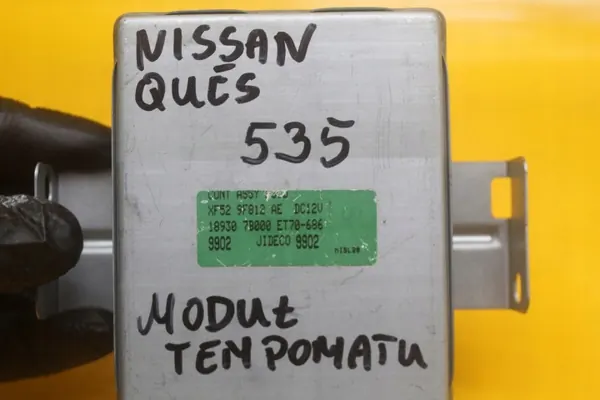 NISSAN
QUĆS
535
CONT ASSY
XF52 9F812 AE DC12V
18930 7B000 ET70-686
9902 JIDECO 9902
MODUŁ
TEMPOMATU